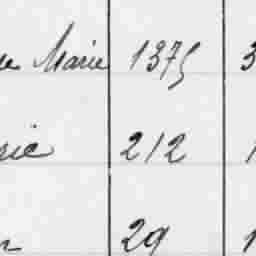 Marie 1375 3
212 1
29 1